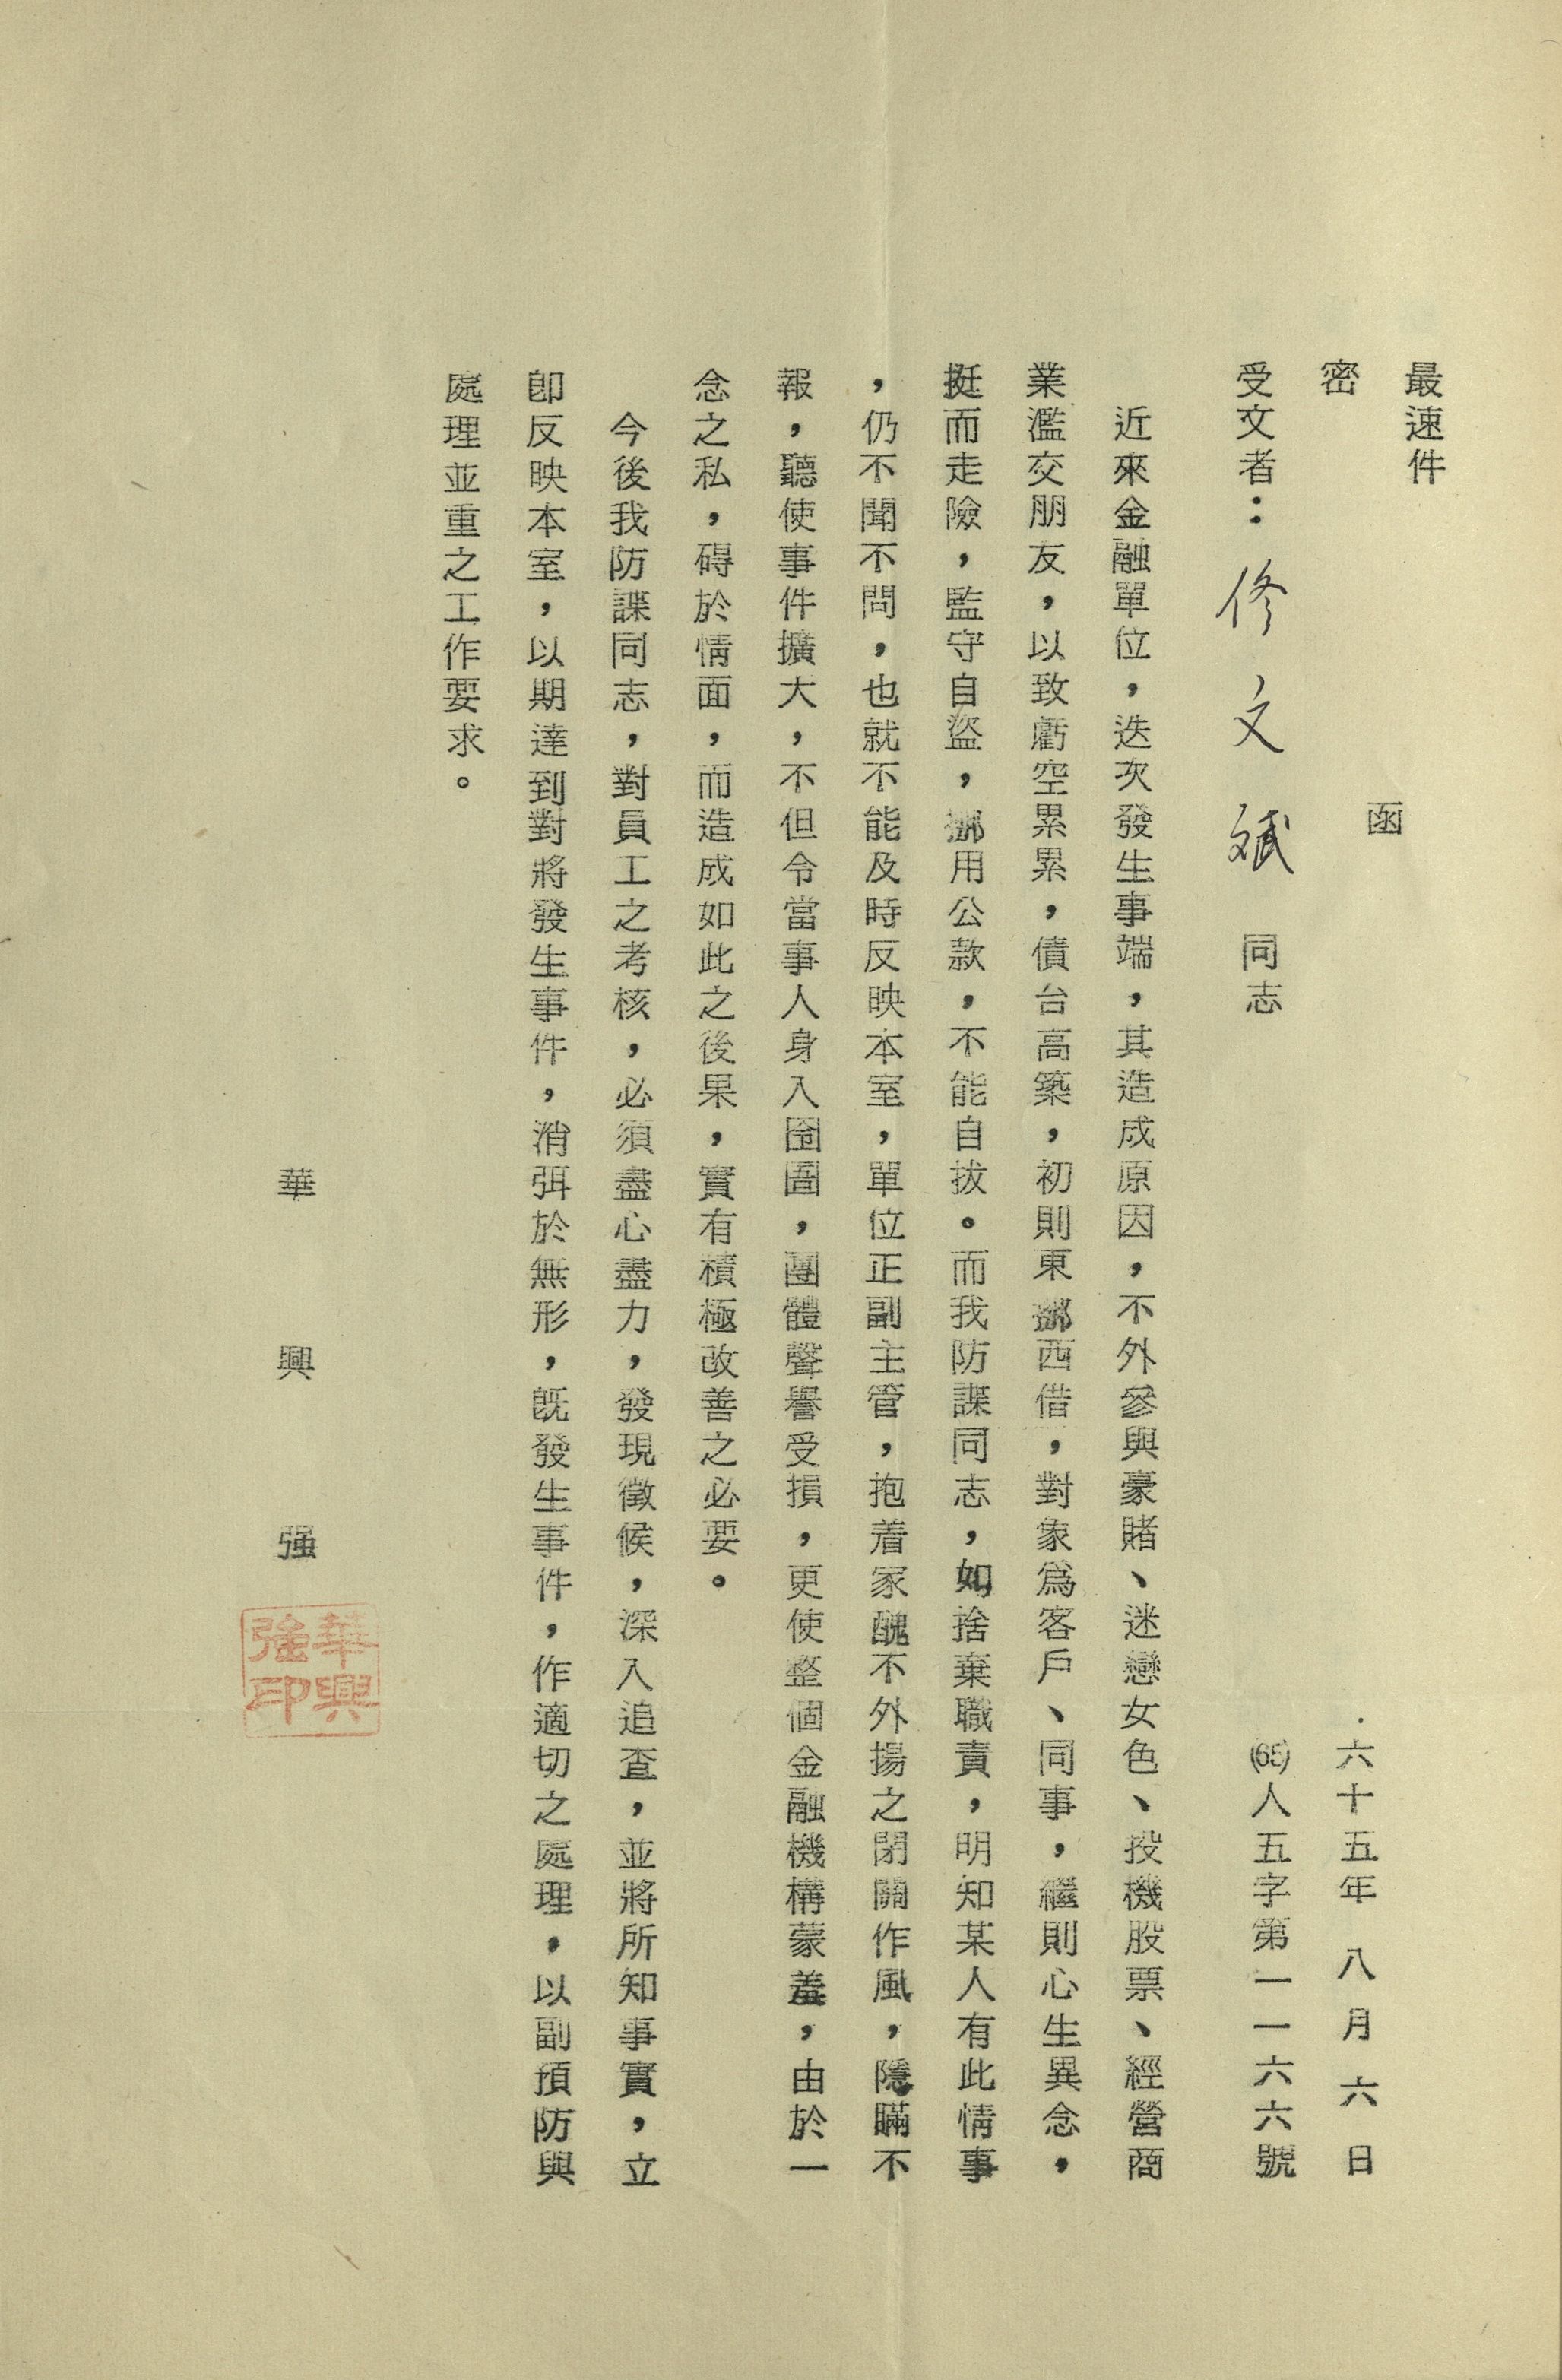 最速件
密
函
六十五年八月六日
(65)人五字第一一六六號
受文者：修文斌同志
近來金融單位，迭次發生事端，其造成原因，不外參與豪賭、迷戀女色、投機股票、經營商
業濫交朋友，以致虧空累累，債台高築，初則東挪西借，對象為客戶、同事，繼則心生異念，
挺而走險，監守自盜，挪用公款，不能自拔。而我防諜同志，如捨棄職責，明知某人有此情事
，仍不聞不問，也就不能及時反映本室，單位正副主管，抱着家醜不外揚之閉關作風，隱瞞不
報，聽使事件擴大，不但令當事人身入囹圄，團體聲譽受損，更使整個金融機構蒙羞，由於一
念之私，碍於情面，而造成如此之後果，實有積極改善之必要。
今後我防諜同志，對員工之考核，必須盡心盡力，發現徵候，深入追查，並將所知事實，立
卽反映本室，以期達到對將發生事件，消弭於無形，旣發生事件，作適切之處理，以副預防與
處理並重之工作要求。
華興强
華興
強印